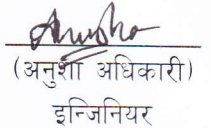 (अनुशा अधिकारी)
इन्जिनियर